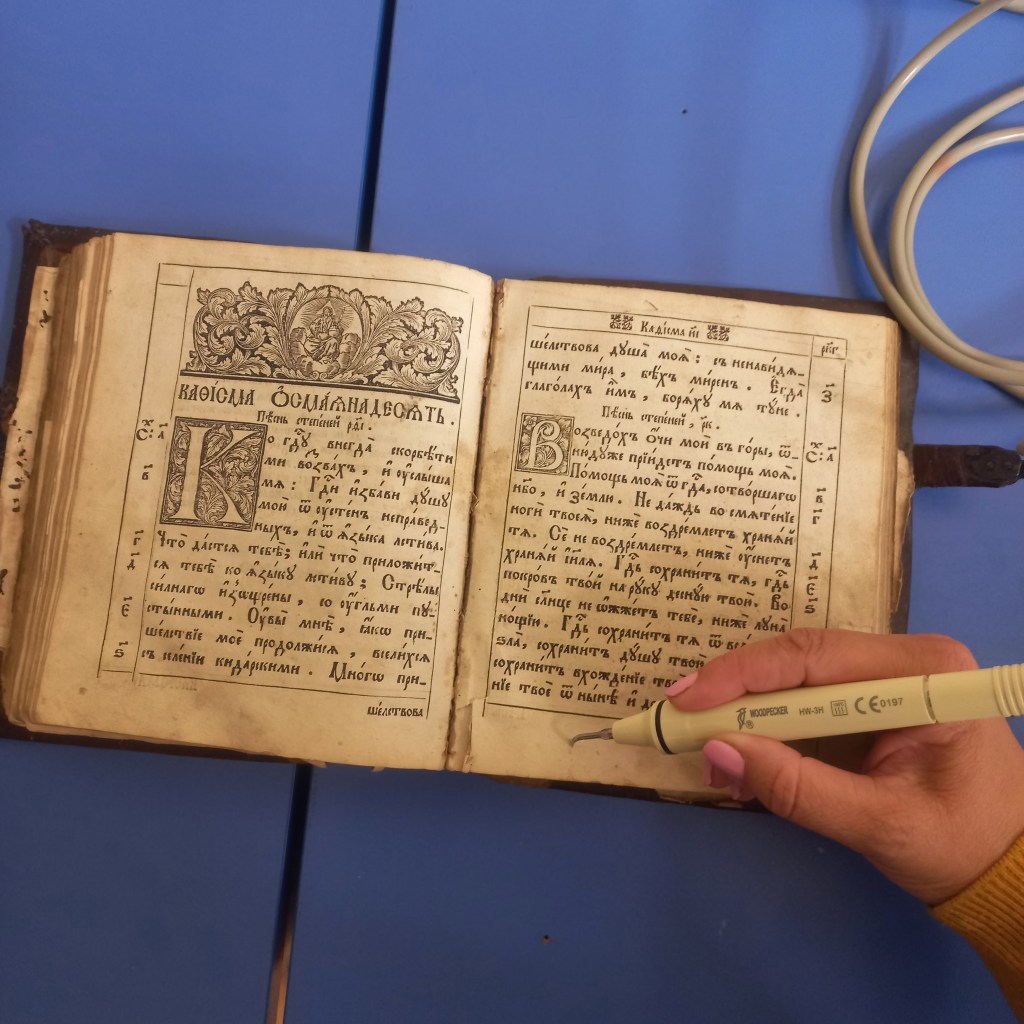 КАѲІ́СМА Ѻ҆СМАѦНАДЕСѦ́ТЬ .
Пѣ́снь степе́ней рѳ҃і .
Ко гдⷭ҇ꙋ внегда̀ скорбѣ́ти
ми воззва́хъ , и҆ оу҆слы́ша
мѧ : Гдⷭ҇и и҆зба́ви дꙋ́шꙋ
мою̀ ѿ оу҆сте́нъ непра́вед-
ныхъ , и҆ ѿ ѧ҆зы́ка льсти́ва .
Что̀ да́стсѧ тебѣ̀ ; и҆лѝ что̀ приложи́т-
сѧ тебѣ̀ ко ѧ҆зы́кꙋ льсти́вꙋ ; Стрѣ́лы
си́льнагѡ и҆зѡщре́ны , со оу҆́гльми пꙋ-
сты́нными . Оу҆вы̀ мнѣ̀ , ꙗ҆́кѡ при-
ше́льствїе моѐ продолжи́сѧ , всели́хсѧ
съ селе́нїи кида́рскими . Мно́гѡ при-
ше́льствова
Каѳі́сма и҃і
рп҃г
ше́льствова дꙋша̀ моѧ̀ : съ ненави́дѧ-
щими ми́ра , бѣ́хъ ми́ренъ . Е҆гда̀
глаго́лахъ и҆̀мъ , борѧ́хꙋ мѧ тꙋ́не .
Пѣ́снь степе́ней , р҃к .
Возведо́хъ о҆́чи моѝ въ го́ры , ѿ-
ню́дꙋже прїи́детъ по́мощь моѧ̀ .
По́мощь моѧ̀ ѿ гдⷭ҇а , сотво́ршагѡ
нб҃о , и҆ зе́млю . Не да́ждь во смѧте́нїе
ногѝ твоеѧ̀ , нижѐ воздре́млетъ хранѧ́й
тѧ . Сѐ не воздре́млетъ , нижѐ оу҆́снетъ
хранѧ́й і҆и҃лѧ . Гдⷭ҇ь сохрани́тъ тѧ , гдⷭ҇ь
покро́въ тво́й на рꙋ́кꙋ деснꙋ́ю твою̀ . Во
днѝ со́лнце не ѡ҆жже́тъ тебѐ , нижѐ лꙋна̀
но́щїю . Гдⷭ҇ь сохрани́тъ тѧ ѿ
зла̀ , сохрани́тъ дꙋ́шꙋ твою̀
сохрани́тъ вхожде́нїе
нїе твоѐ ѿ ны́нѣ и҆
WOODPECKER HW-3H CE 0197
®